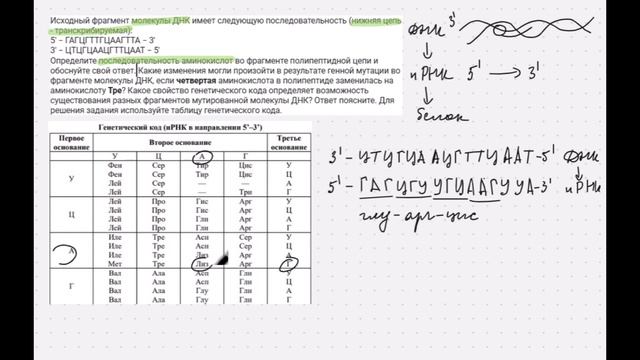 Исходный фрагмент молекулы ДНК имеет следующую последовательность (нижняя цепь
- транскрибируемая):
5' – ГАГЦГТТГЦААГТТА – 3'
3' – ЦТЦГЦААЦГТТЦААТ – 5'
Определите последовательность аминокислот во фрагменте полипептидной цепи и
обоснуйте свой ответ. Какие изменения могли произойти в результате генной мутации во
фрагменте молекулы ДНК, если четвертая аминокислота в полипептиде заменилась на
аминокислоту Тре? Какое свойство генетического кода определяет возможность
существования разных фрагментов мутированной молекулы ДНК? Ответ поясните. Для
решения задания используйте таблицу генетического кода.
Генетический код (иРНК в направлении 5'–3')
Первое основание Второе основание Третье основание
У Ц А Г
У Фен Сер Тир Цис У
Фен Сер Тир Цис Ц
Лей Сер — — А
Лей Сер — Три Г
Ц Лей Про Гис Арг У
Лей Про Гис Арг Ц
Лей Про Глн Арг А
Лей Про Глн Арг Г
А Иле Тре Асн Сер У
Иле Тре Асн Сер Ц
Иле Тре Лиз Арг А
Мет Тре Лиз Арг Г
Г Вал Ала Асп Гли У
Вал Ала Асп Гли Ц
Вал Ала Глу Гли А
Вал Ала Глу Гли Г
ДНК 3'
иРНК 5' → 3'
белок
3' – ЦТЦГЦААЦГТТЦААТ – 5' ДНК
5' – ГАГЦГУУГЦААГУУА – 3' иРНК
глу – арг – цис